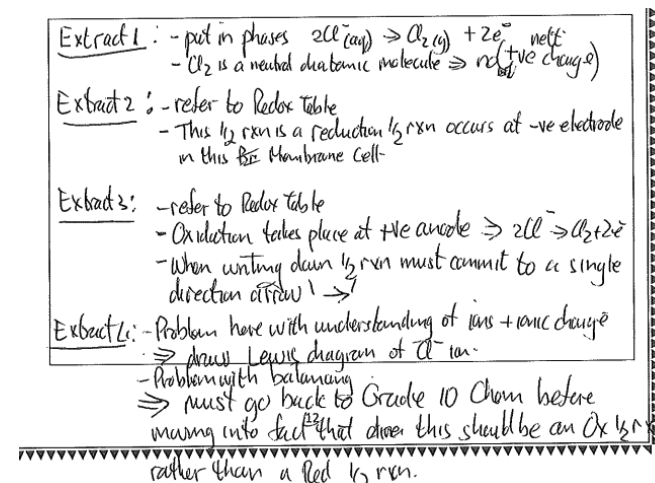 Extract 1: - put in phases 2Cl⁻(aq) → Cl₂(g) + 2e⁻
- Cl₂ is a neutral diatomic molecule ⇒ no (+ve charge) nett
Extract 2: - refer to Redox Table
- This ½ rxn is a reduction ½ rxn occurs at -ve electrode
in this Membrane Cell.
Extract 3: - refer to Redox Table
- Oxidation takes place at +ve anode ⇒ 2Cl⁻ → Cl₂ + 2e⁻
- When writing down ½ rxn must commit to a single
direction arrow '→'
Extract 4: - Problem here with understanding of ions + ionic charge
⇒ draw Lewis diagram of Cl⁻ ion.
- Problem with balancing
⇒ must go back to Grade 10 Chem before
moving into fact that this should be an Ox ½ rx
rather than a Red ½ rxn.